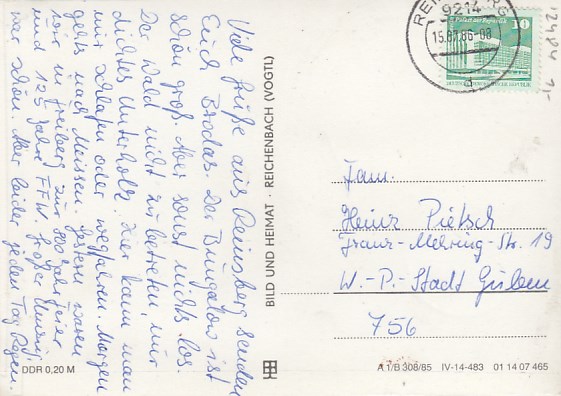 Viele Grüße aus Reinsberg senden
Euch Brodas. Der Bungalow ist
schön groß. Aber sonst nichts los.
Der Wald nicht zu betreten, nur
dichtes Unterholz. Hier kann man
nur schlafen oder wegfahren. Morgen
gehts nach Meissen. Gestern waren
wir in Freiberg zur 800 Jahrfeier
und 125 Jahre FFW. Großer Umzug,
war schön. Aber leider jeden Tag Regen.
DDR 0,20 M
BILD UND HEIMAT · REICHENBACH (VOGTL)
9214
15.07.86-08
a
Palast der Republik
10
Fam.
Heinz Pietsch
Franz-Mehring-Str. 19
W.-P.-Stadt Guben
756
A 1/B 308/85 IV-14-483 01 14 07 465